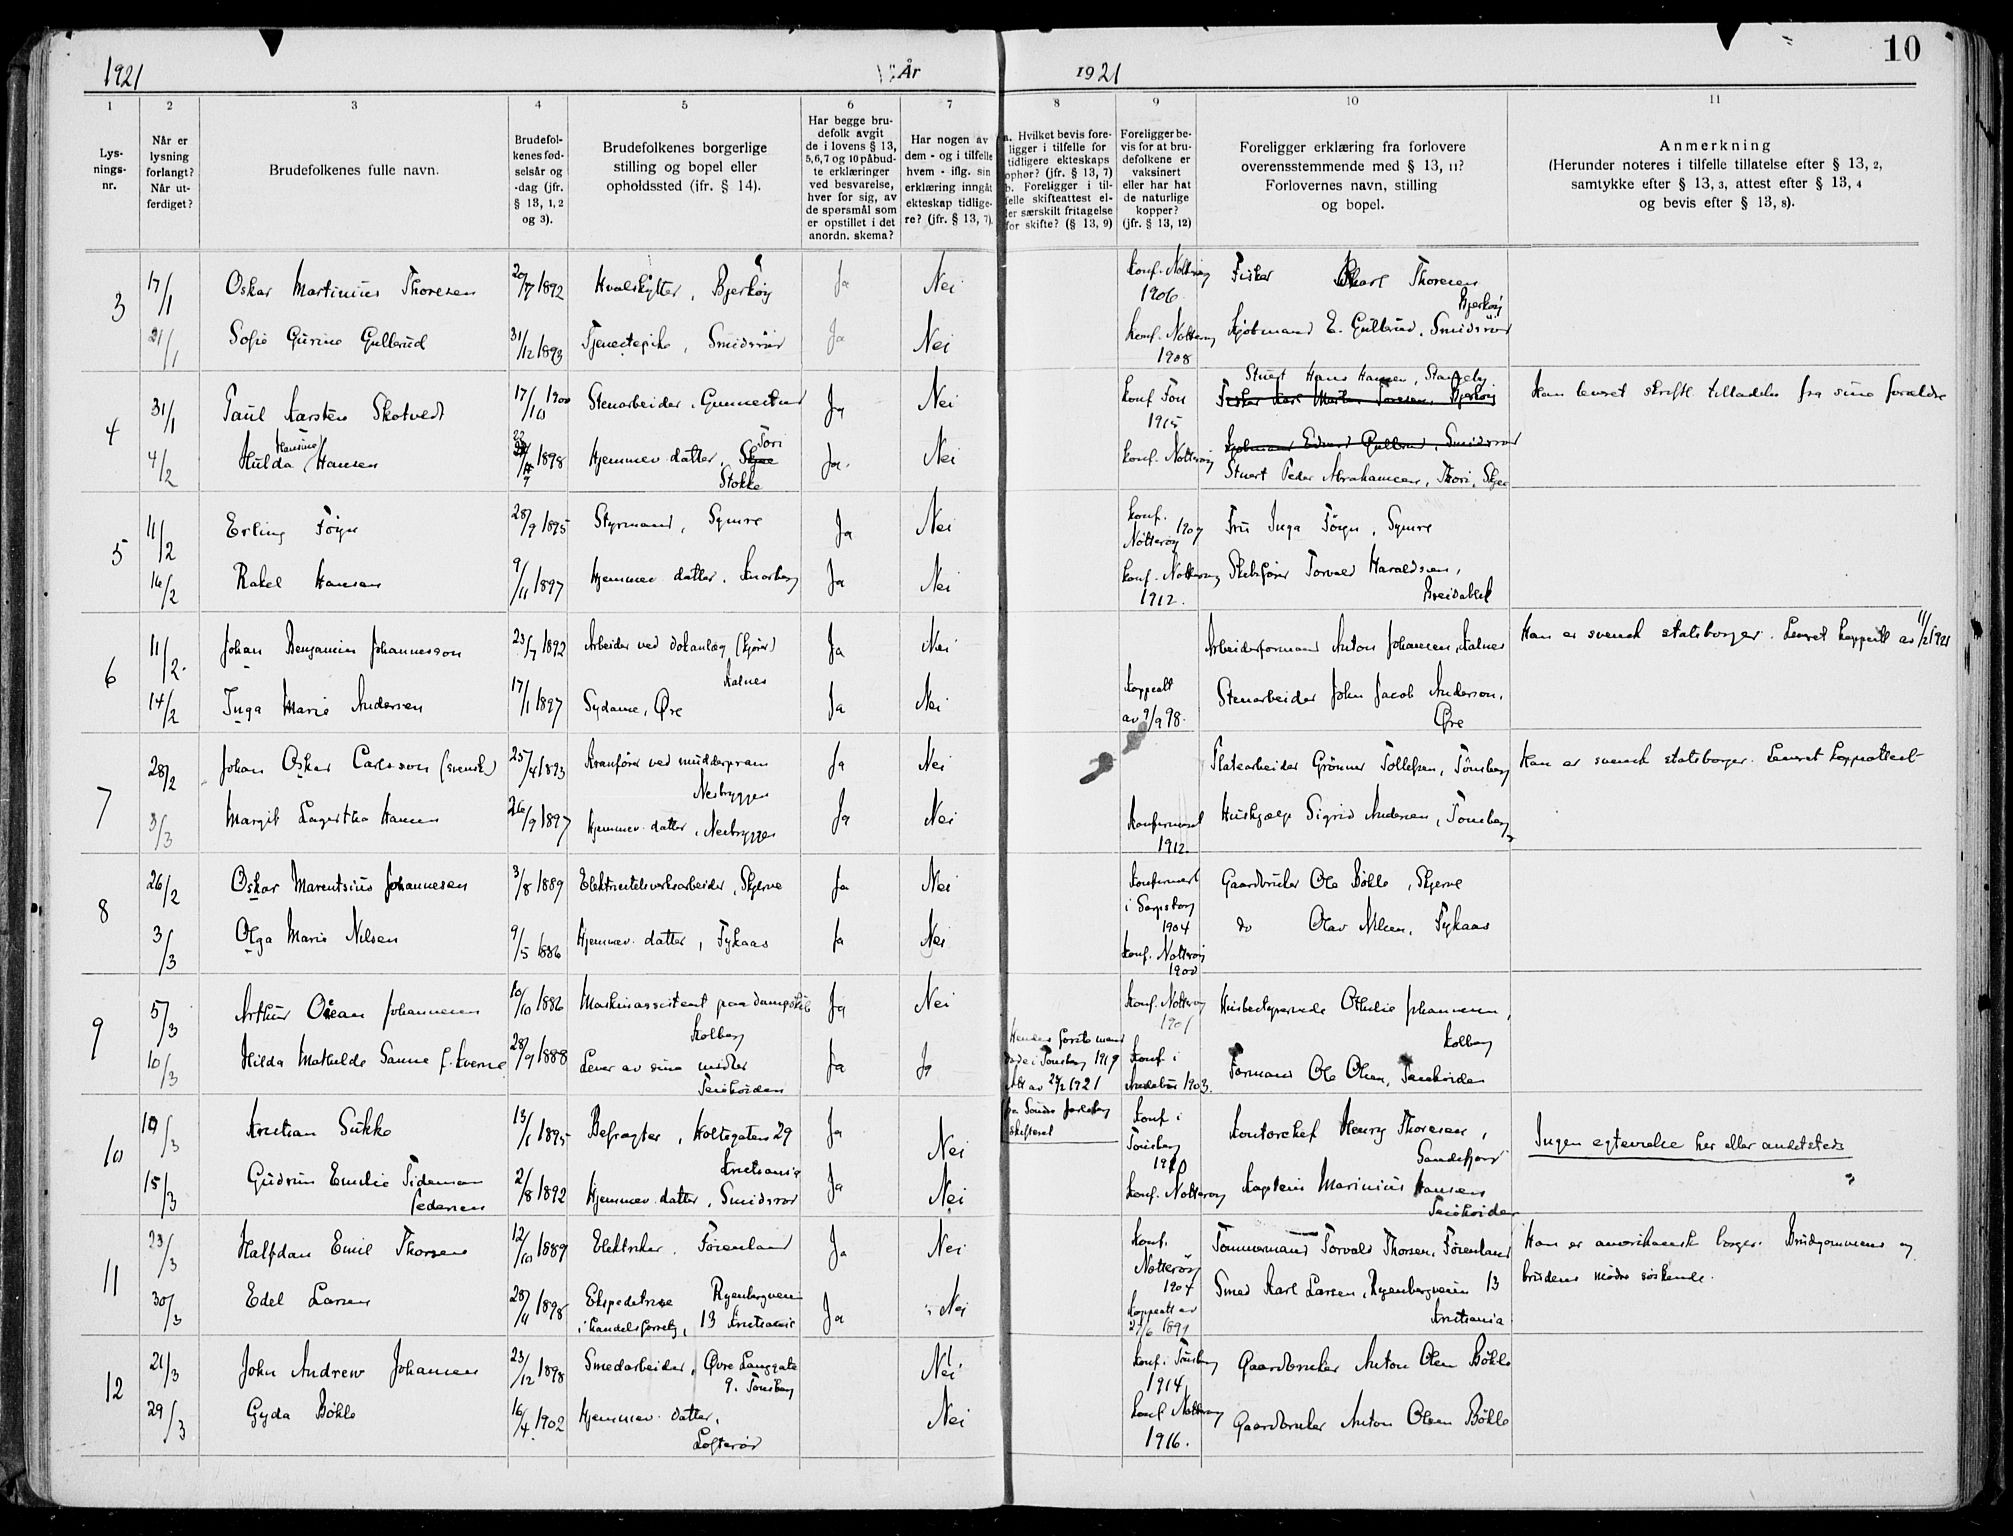 10
1921 År 1921
1 2 3 4 5 6 7 8 9 10 11
Lys-
nings-
nr.
Når er
lysning
forlangt?
Når ut-
ferdiget?
Brudefolkenes fulle navn.
Brudefol-
kenes fød-
selsår og
-dag (jfr.
§ 13, 1, 2
og 3).
Brudefolkenes borgerlige
stilling og bopel eller
opholdssted (ifr. § 14).
Har begge bru-
defolk avgit
de i lovens § 13,
5,6,7 og 10 påbud-
te erklæringer
ved besvarelse,
hver for sig, av
de spørsmål som
er opstillet i det
anordn. skema?
Har nogen av
dem - og i tilfelle
hvem - iflg. sin
erklæring inngåt
ekteskap tidlige-
re? (jfr. § 13, 7).
a. Hvilket bevis fore-
ligger i tilfelle for
tidligere ekteskaps
ophør? (jfr. § 13, 7)
b. Foreligger i til-
felle skifteattest el-
ler særskilt fritagelse
for skifte? (§ 13, 9)
Foreligger be-
vis for at bru-
defolkene er
vaksinert
eller har hat
de naturlige
kopper?
(jfr. § 13, 12)
Foreligger erklæring fra forlovere
overensstemmende med § 13, 11?
Forlovernes navn, stilling
og bopel.
Anmerkning
(Herunder noteres i tilfelle tillatelse efter § 13, 2,
samtykke efter § 13, 3, attest efter § 13, 4
og bevis efter § 13, 8).
3 17/1 Oskar Martinius Thoresen 1892 Hvalskytter, Bjerkøy Ja Nei Konf. Nøtterøy 1906 Fisker Karl Thoresen Bjerkøy
21/1 Sofie Gurine Gullerud 31/12 1893 Tjenestepike, Smidsrød Ja Nei Konf. Nøtterøy 1908 Kjøbmand E. Gullerud, Smidsrød
4 31/1 Paul Karsten Skotvedt 17/10 1900 Stenarbeider, Gunnestad Ja Nei Konf. 1915 Stuert Hans Hansen, Stangeby Fisker Karl Thoresen, Bjerkøy Han leveret skriftl. tilladelse fra sine forældre
4/2 Hulda Hansine Hansen 1898 Hjemmev. datter, Tori Skjee Stokke Ja Nei Konf. Nøtterøy Kjøbmand Edvard Gullerud, Smidsrød
Stuert Peder Abrahamsen, Thori, Skjee
5 11/2 Erling Føyn 28/9 1895 Styrmand, Symre Ja Nei Konf. Nøtterøy 1907 Fru Inga Føyn, Symre
16/2 Rakel Hansen 9/11 1897 Hjemmev. datter, Knarberg Ja Nei Konf. Nøtterøy 1912. Skibsfører Torvald Haraldsen, Breidablik
6 11/2. Johan Benjamin Johannesson 23/7 1892 Arbeider ved dokanlæg (Kjøpm) Kalnes Ja Nei Arbeiderformand Anton Johansen, Kalnes Han er svensk statsborger. Leveret koppeatt av 11/2 1921
14/2 Inga Marie Andersen 17/1 1897 Sydame, Øre Ja Nei Koppeatt av 9/9 98. Stenarbeider John Jacob Anderson, Øre
7 28/2 Johan Oskar Carlsson (svensk) 25/4 1893 Kranfører ved mudderpram Nesbryggen Ja Nei Platearbeider Grönner Tollefsen, Tönsberg Han er svensk statsborger. Leveret koppeattest
3/3 Margit Lagertha Hansen 26/9 1897 Hjemmev. datter, Nesbryggen Ja Nei Konfirmert 1912. Huskjælp Sigrid Andersen, Tønsberg
8 26/2 Oskar Marentsius Johannesen 3/8 1889 Elektricitetsverksarbeider, Skjerve Ja Nei Konfirmert i Sarpsborg 1904 Gaardbruker Ole Bøhle, Skjerve
3/3 Olga Marie Nilsen 9/5 1886 Hjemmev. datter, Tykaas Ja Nei Konf. Nøtterøy 1900 do Olav Nilsen, Tykaas
9 5/3 Arthur Oscar Johannesen 10/10 1886 Maskinassistent paa dampskib Kolberg Ja Nei Konf. Nøtterøy 1901 Husbestyrerinde Othilie Johannesen, Kolberg
10/3 Hilda Mathilde Sanne f. Kverne 28/9 1888 Lever av sine midler Teiehøiden Ja Ja Hendes første mand døde i Tønsberg 1919 Att av 24/2 1921 fra Søndre Jarlsberg skifteret Konf. i Andebu 1903. Formand Ole Olsen, Teiehøiden
10 10/3 Kristian Sukke 13/1 1895 Befragter, Holtegaten 29 Kristiania Ja Nei Konf. i Tønsberg 1910 Kontorchef Henry Thoresen, Sandefjord Ingen egteskap her eller andetsteds
15/3 Gudrun Emilie Tideman Pedersen 2/8 1892 Hjemmev. datter, Smidsrød Ja Nei Konf. Nøtterøy Kaptein Marinius Hansen Teiehøiden "
11 23/3 Halfdan Emil Thorsen 12/10 1889 Elektriker, Föienland Ja Nei Konf. Nøtterøy 1904 Tømmermand Torvald Thorsen, Føienland Han er amerikansk borger. Brudgommens og brudens mødre søskende.
30/3 Edel Larsen 28/11 1898 Ekspeditrice Ryenbergveien i handelsforretn, 13 Kristiania Ja Nei Koppeatt av 21/6 1899 Smed Karl Larsen, Ryenbergveien 13 Kristiania
12 21/3 John Andrew Johansen 23/12 1898 Smedarbeider, Øvre Langgate 9. Tønsberg Nei Konf. i Tønsberg 1914 Gaardbruker Anton Olsen Bøhle
29/3 Gyda Bøhle 16/4 1902 Hjemmev. datter, Lofterød Nei Konf. Nøtterøy 1916. Gaardbruker Anton Olsen Bøhle